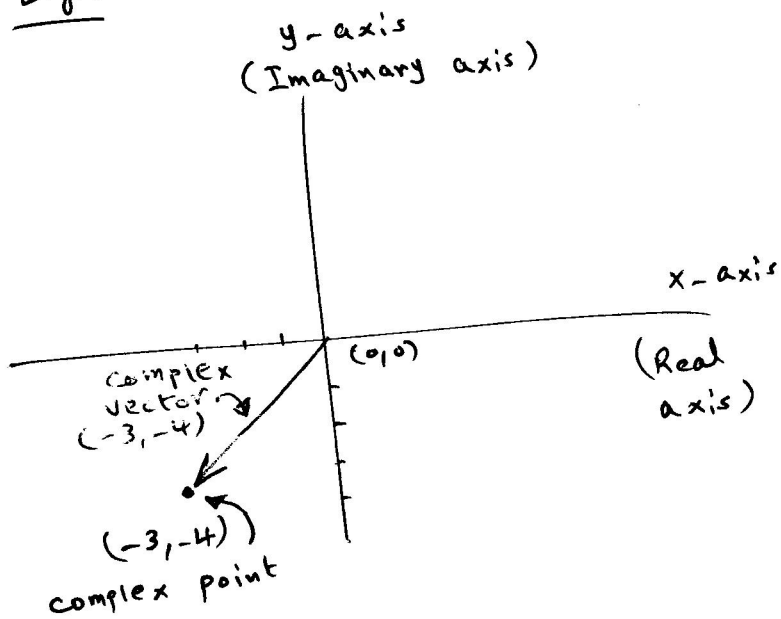 y-axis
(Imaginary axis)
x-axis
(0,0)
(Real
axis)
complex
vector
(-3,-4)
(-3,-4)
complex point